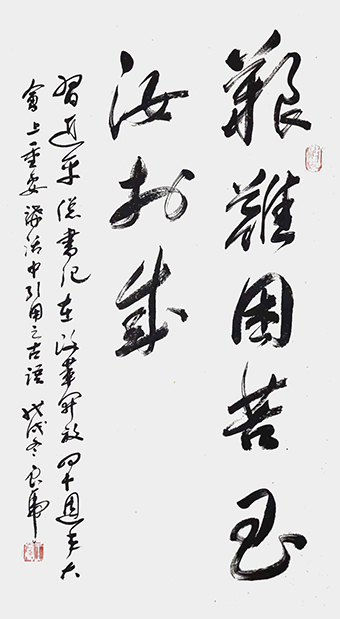 艱難困苦玉
汝於成
習近平總書記在改革開放四十週年大
會上重要講話中引用之古語 戊戌冬